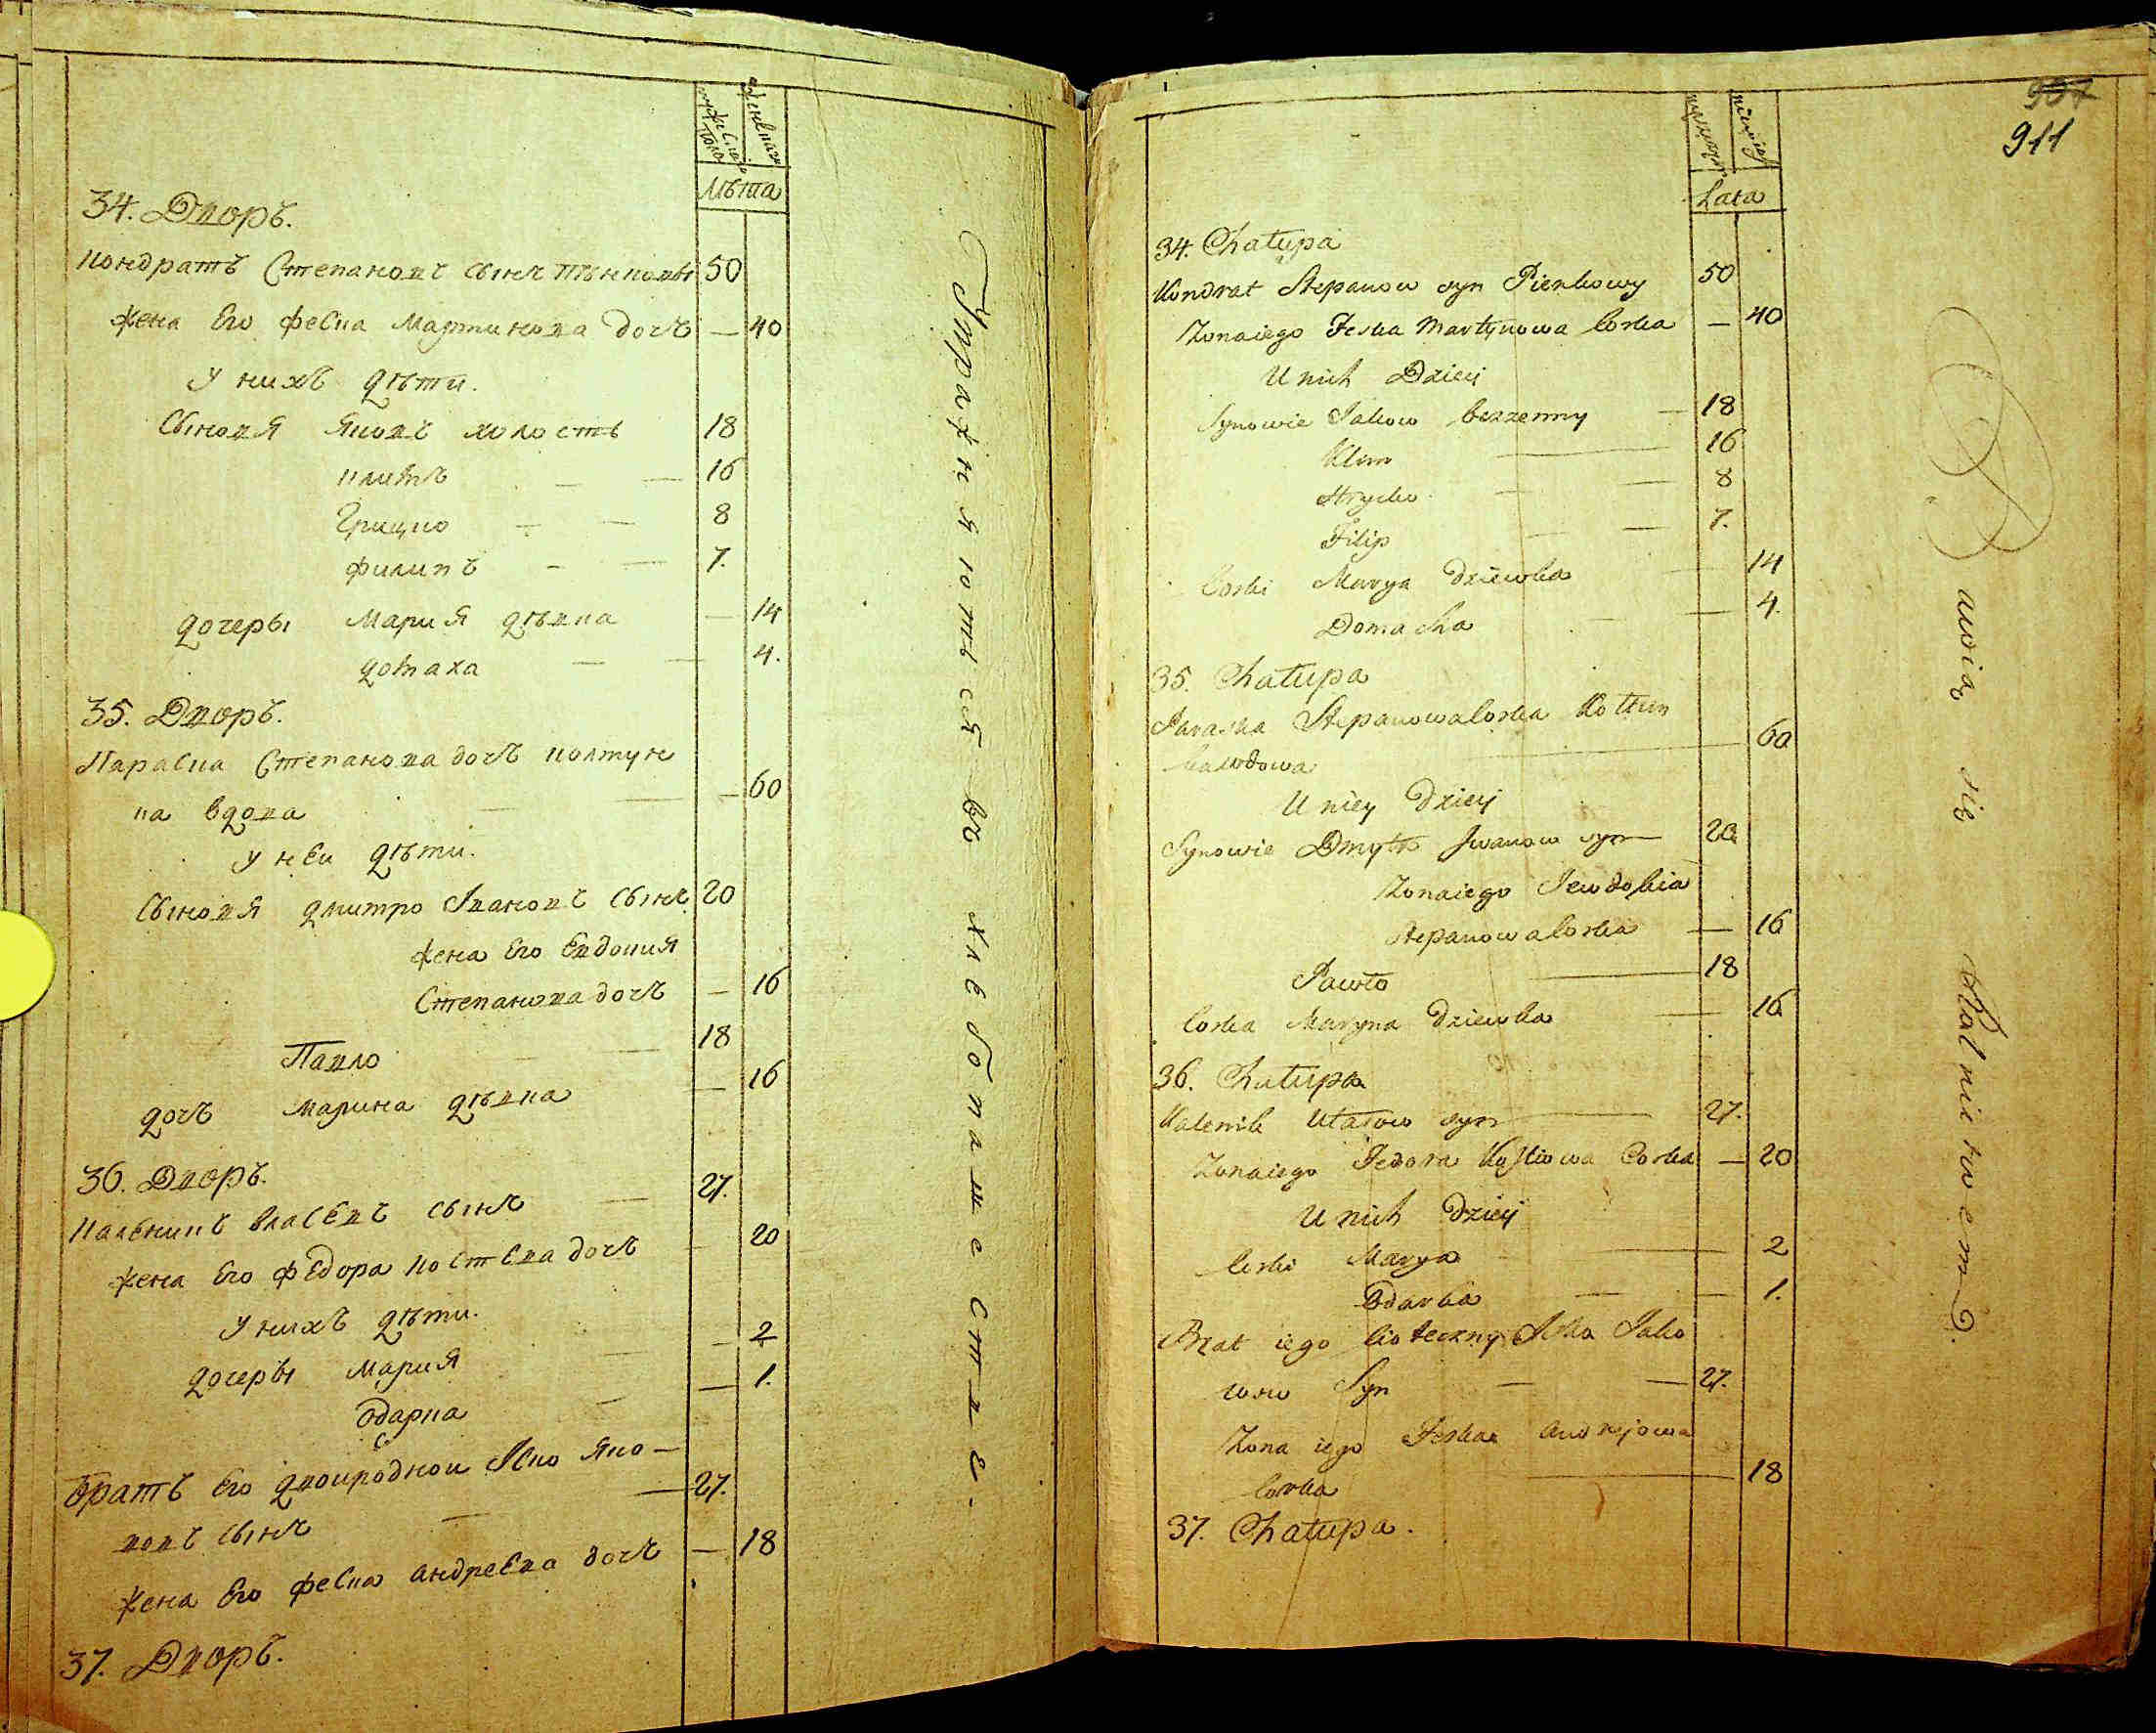 мужеска пола
женска
лѣта
34. Дворъ.
Кондратъ Степановъ сынъ Пѣнковы 50
жена Его Феска Мартинова дочъ — 40
у нихъ дѣти.
Сыновя Яковъ холостъ 18
Климъ — — 16
Грицко — — 8
Филипъ — — 7.
дочеры Мария дѣвка — 14
домаха — — 4.
35. Дворъ.
Параска Степанова дочъ Колтун
ка вдова — — 60
у неи дѣти.
Сыновя дмитро Ивановъ сынъ 20
жена Его Евдокия
Степанова дочъ — 16
Павло — — 18
дочъ Марина дѣвка — 16
36. Дворъ.
Каленикъ Власевъ сынъ — 27.
жена Его Федора Костева дочъ 20
у нихъ дѣти.
дочеры Мария — 2
Одарка — — 1.
братъ Его двоиродной Яско Яко—
вовъ сынъ — — 27.
жена Его Феска Андреева дочъ — 18
37. Дворъ.
Упражняютъся въ хлебопашестве.
911
Lata
34. Chałupa
Kondrat Stepanow syn Pienkowy 50
Zonaiego Feska Martynowa Corka — 40
U nich Dzieci
Synowie Jakow bezzenny — 18
Klim — 16
Hrycko — — 8
Filip — — 7.
Corki Marya Dziewka — 14
Domacha — — 4.
35. Chałupa
Paraska Stepanowa Corka Kołtun
kawdowa — 60
U niey Dzieci
Synowie Dmytro Jwanow syn — 20
Zonaiego Jewdokia
Stepanowa Corka — 16
Pawło — 18
Corka Maryna Dziewka — 16
36. Chałupa
Kalenik Własow syn — 27.
Zonaiego Fedora Kostiowa Corka — 20
U nich Dzieci
Corki Marya — 2
Odarka — — 1.
Brat iego Cioteczny Jsko Jako
wow Syn — — 27.
Zona iego Feska Andrejowa
Corka — 18
37. Chałupa.
Bawią się Rolnictwem.